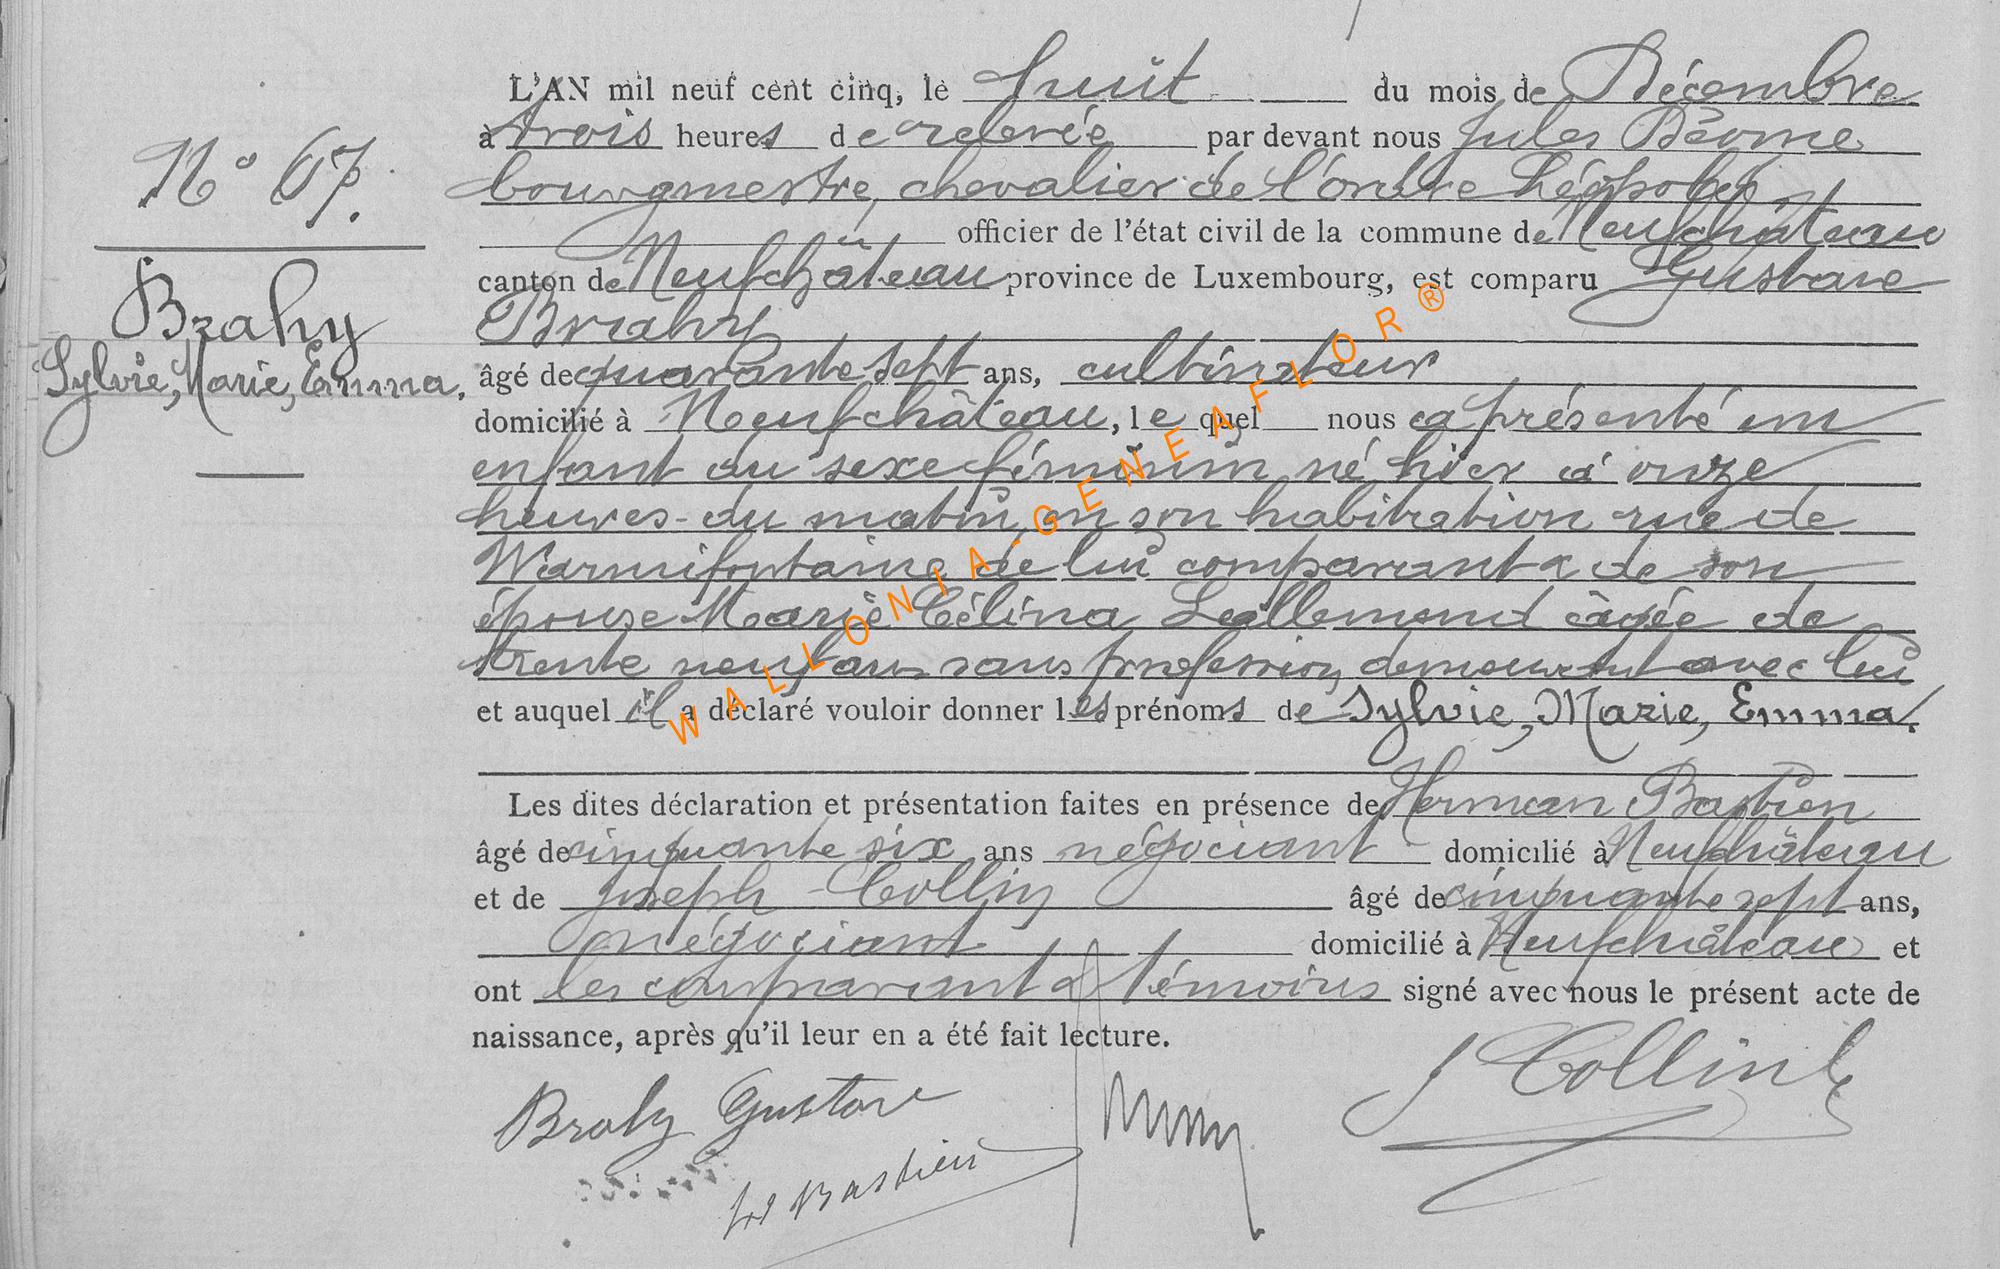 N° 67.
Brahy
Sylvie, Marie, Emma.
L'AN mil neuf cent cinq, le huit du mois de Décembre
à trois heures de relevée par devant nous Jules
bourgmestre, chevalier de l'ordre Léopold,
officier de l'état civil de la commune de Neufchâteau
canton de Neufchâteau province de Luxembourg, est comparu Gustave
Brahy
âgé de quarante sept ans, cultivateur
domicilié à Neufchâteau, lequel nous a présenté un
enfant du sexe féminin né hier à onze
heures du matin, en son habitation rue de
Warmifontaine de lui comparant & de son
épouse Marie Célina Lallemand âgée de
trente neuf ans sans profession, demeurant avec lui
et auquel il a déclaré vouloir donner les prénoms de Sylvie, Marie, Emma.
Les dites déclaration et présentation faites en présence de Herman Bastien
âgé de cinquante six ans négociant domicilié à Neufchâteau
et de Joseph Collin âgé de cinquante sept ans,
négociant domicilié à Neufchâteau et
ont les comparant & témoins signé avec nous le présent acte de
naissance, après qu'il leur en a été fait lecture.
J Collin
Brahy Gustave
Bastien
WALLONIA-GENEAFLOR®